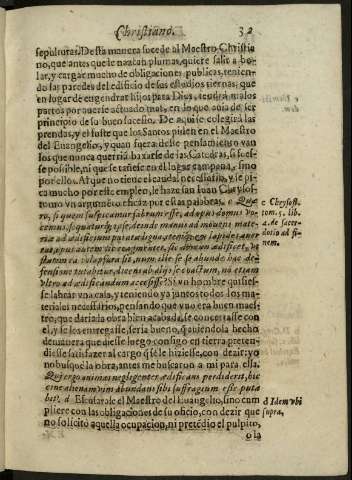 Christiano. 32
sepulturas. Desta manera sucede al Maestro Christia
no, que antes que le nazcan plumas, quiere salir a bo-
lar, y cargar mucho de obligaciones publicas, tenien-
do las paredes del edificio de sus estudios tiernas, que
en lugar de engendrar hijos para Dios, tendrá malos
partos por averse actuado mal, en lo que avia de ser
principio de su buen sucesso. De aqui se colegirá las
prendas, y el fuste que los Santos piden en el Maestro
del Euangelio, y quan fuera desse pensamiento van
los que nunca querriá baxarse de las Catedras, si fues-
se possible, ni que se tañesse en el lugar campana, sino
por ellos. Al que no tiene el caudal necessario, y se pi-
ca mucho por este empleo, le haze san Iuan Chrysos-
tomo vn argumēto eficaz por estas palabras. c Quæ
ro, si quem suspicamur fabrum esse, ad opus domus vo-
cemus,
materiæ ad ædificium
ultro ad ædificandum accessisse? Si vn hombre quisies-
se labrar vna casa, y teniendo ya juntos todos los ma-
teriales necessarios, pensando que vno era buen maes-
tro, que daria la obra bien acabada, se concertasse con
el, y se los entregasse, seria bueno, q̃ auiendola hecho
de manera que diesse luego consigo en tierra preten-
diesse satisfazer al cargo q̃ se le hiziesse, con dezir: yo
no busquè la obra, antes me buscaron a mi para ella.
Qui ergo animas negligenter ædificans perdiderit, hic
cine alienam vim abundans sibi suffragium esse puta
bit? d Escusarase el Maestro del Euangelio, sino cum
pliere con las obligaciones de su oficio, con dezir que
no solicitò aquella ocupacion, ni pretēdio el pulpito,
o la
c Chrysost.
tom. 5. lib.
4. de sacer-
dotio ad fi-
nem.
d Idem vbi
supra.